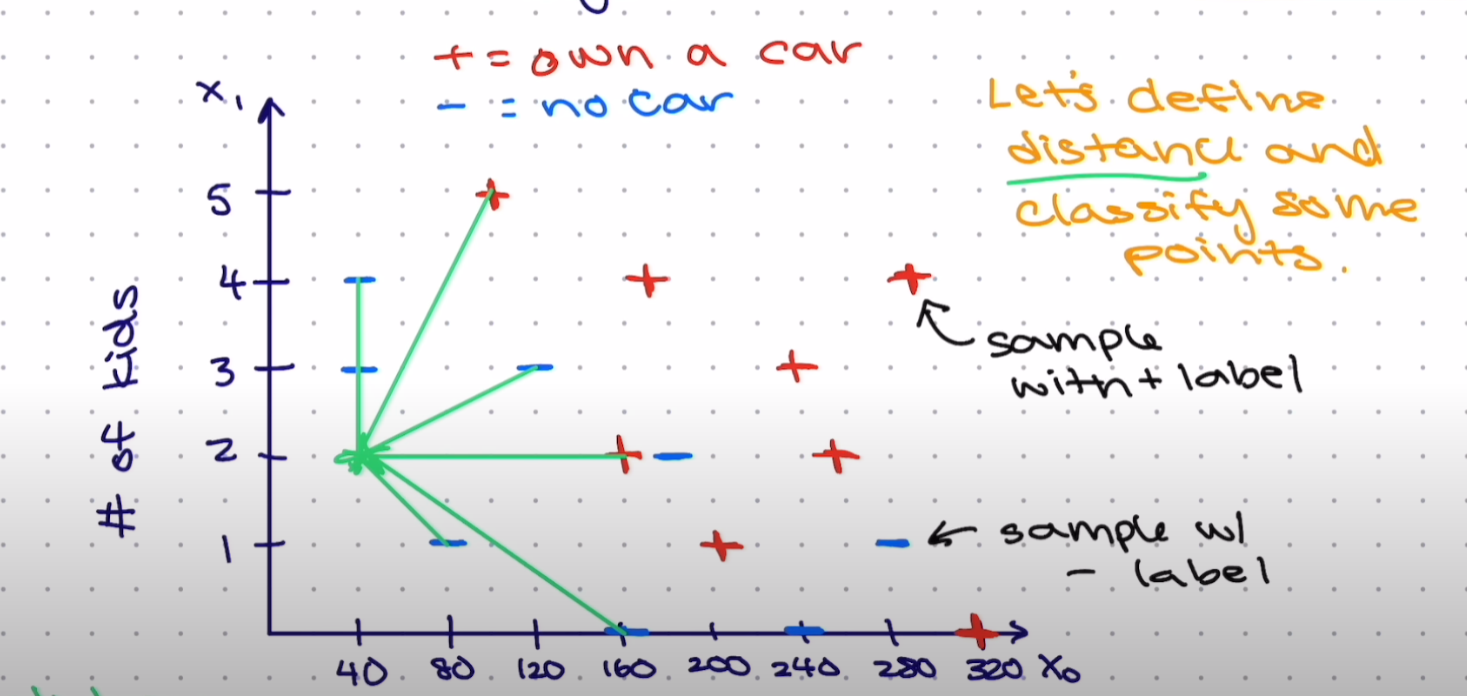 + = own a car
- = no car
Let's define
distance and
classify some
points.
x₁
5
4
3
2
1
# of kids
sample
with + label
sample w/
- label
40 80 120 160 200 240 280 320 x₀